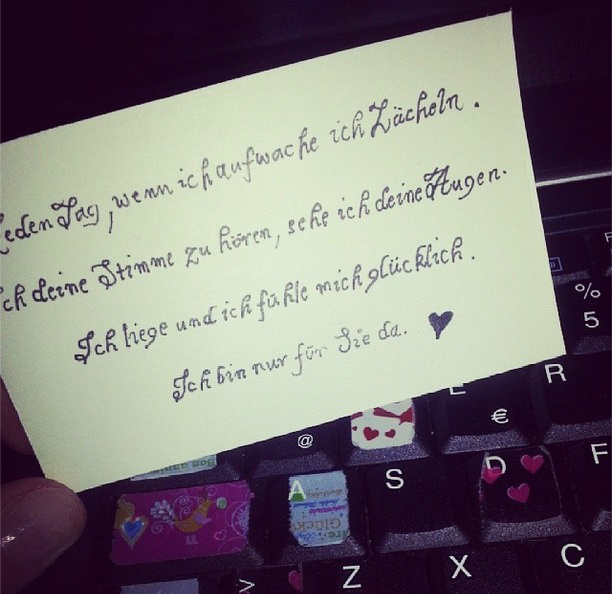 Jeden Tag, wenn ich aufwache ich Lächeln.
Ich deine Stimme zu hören, sehe ich deine Augen.
Ich liege und ich fühle mich glücklich.
Ich bin nur für Sie da. ♥
%
5
E
R
€
@
Bon anni
S
D
F
A
Glück
>
Z
X
C